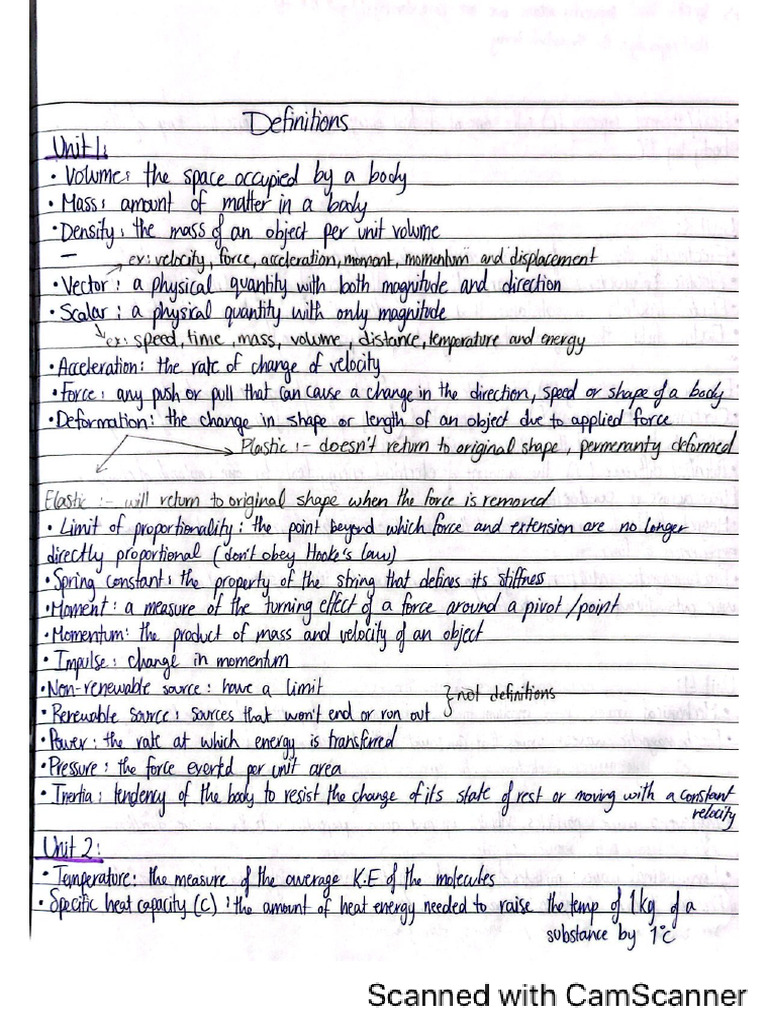 Definitions
Unit 1:
• Volume: the space occupied by a body
• Mass: amount of matter in a body
• Density: the mass of an object per unit volume
ex: velocity, force, acceleration, moment, momentum and displacement
• Vector: a physical quantity with both magnitude and direction
• Scalar: a physical quantity with only magnitude
ex: speed, time, mass, volume, distance, temperature and energy
• Acceleration: the rate of change of velocity
• Force: any push or pull that can cause a change in the direction, speed or shape of a body
• Deformation: the change in shape or length of an object due to applied force
Plastic :- doesn't return to original shape, permenanty deformed
Elastic :- will return to original shape when the force is removed
• Limit of proportionality: the point beyond which force and extension are no longer
directly proportional (don't obey Hooke's law)
• Spring constant: the property of the string that defines its stiffness
• Moment: a measure of the turning effect of a force around a pivot/point
• Momentum: the product of mass and velocity of an object
• Impulse: change in momentum
• Non-renewable source: have a limit
} not definitions
• Renewable source: sources that won't end or run out
• Power: the rate at which energy is transferred
• Pressure: the force everted per unit area
• Inertia: tendency of the body to resist the change of its state of rest or moving with a constant
velocity
Unit 2:
• Temperature: the measure of the average K.E of the molecules
• Specific heat capacity (c): the amount of heat energy needed to raise the temp of 1kg of a
substance by 1°C
Scanned with CamScanner